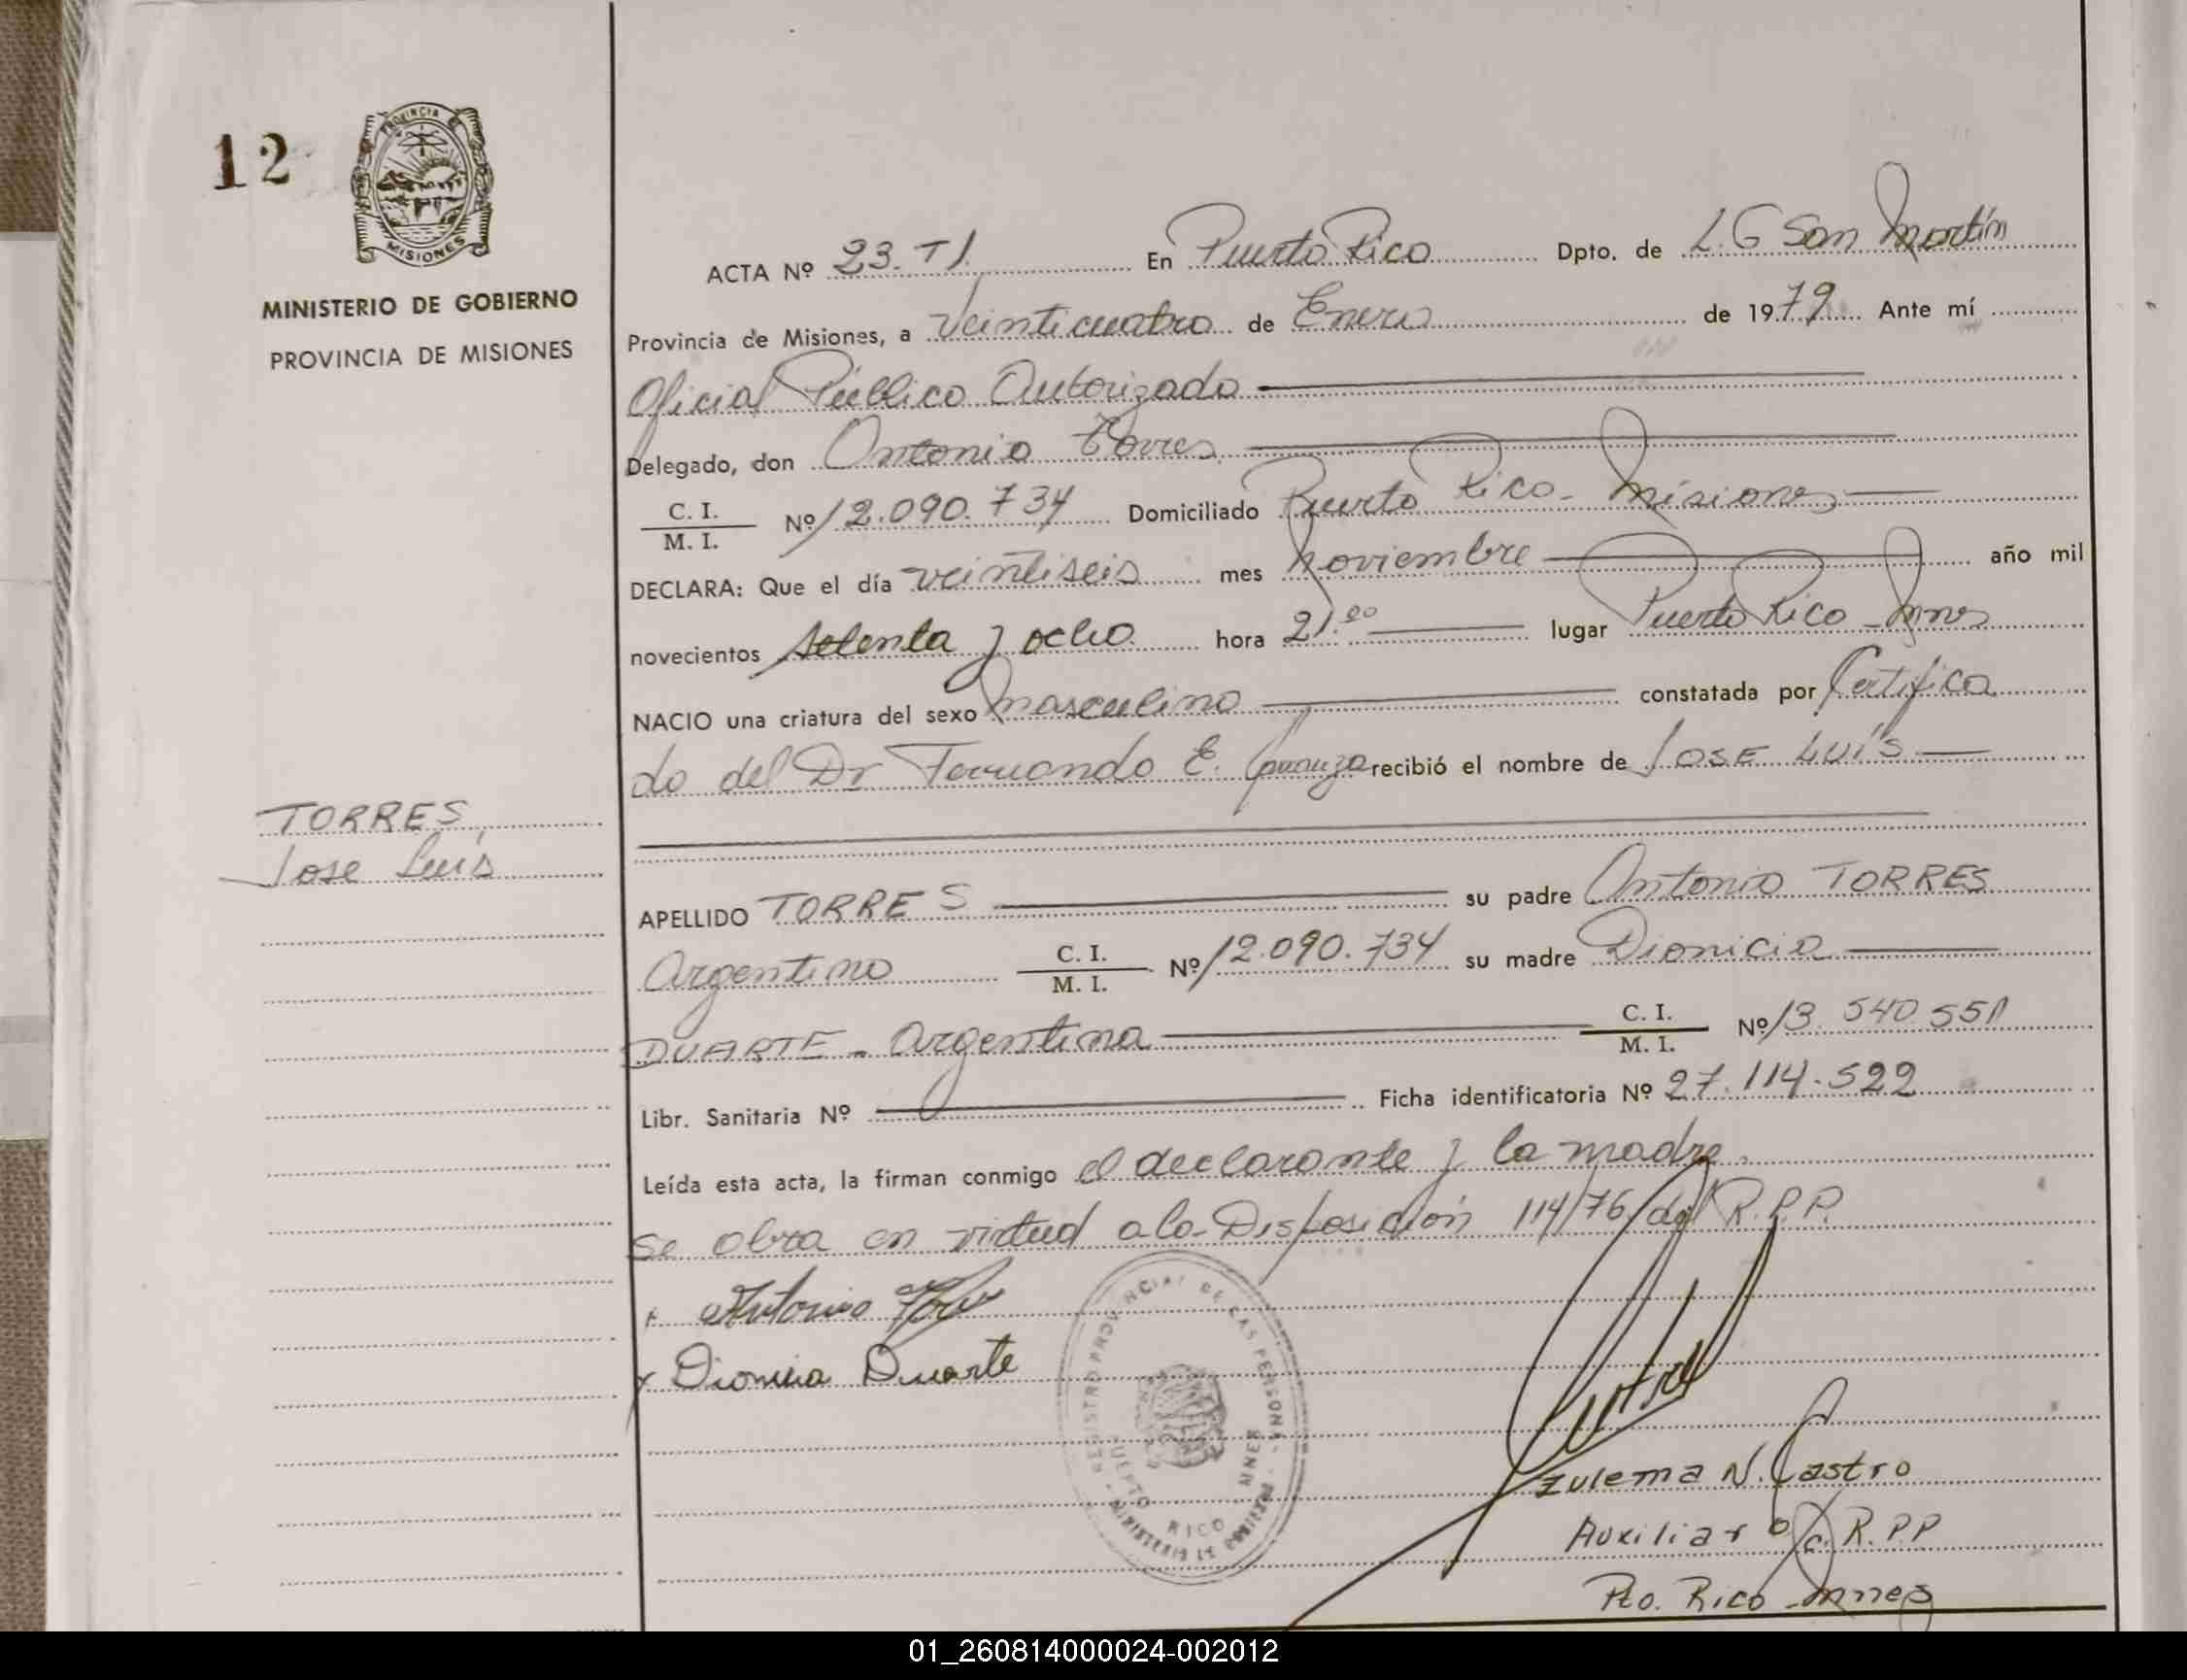 12
PROVINCIA DE
MISIONES
MINISTERIO DE GOBIERNO
PROVINCIA DE MISIONES
TORRES,
Jose Luis
ACTA Nº 23. TI. En Puerto Rico Dpto. de L. G San Martín
Provincia de Misiones, a Veinticuatro de Enero de 1979 Ante mí
Oficial Público Autorizado
Delegado, don Antonio Torres
C. I.
M. I. Nº 12.090.734 Domiciliado Puerto Rico - Misiones
DECLARA: Que el día veintiseis mes Noviembre año mil
novecientos setenta y ocho hora 21.00 lugar Puerto Rico - Mnes
NACIO una criatura del sexo Masculino constatada por Certifica
do del Dr Fernando E. recibió el nombre de JOSE LUIS
APELLIDO TORRES su padre Antonio TORRES
Argentino C. I.
M. I. Nº 12.090.734 su madre Dionicia
DUARTE - Argentina C. I.
M. I. Nº 13.540.551
Libr. Sanitaria Nº Ficha identificatoria Nº 27.114.522
Leída esta acta, la firman conmigo el declarante y la madre.
Se obra en virtud a la Disposición 114/76 del R.P.P.
Antonio Torres
x Dionicia Duarte
REGISTRO PROVINCIAL DE LAS PERSONAS
PUERTO RICO MNES
MINISTERIO DE GOBIERNO
Zulema N. Castro
Auxiliar R.P.P
Pto. Rico - Mnes
01_260814000024-002012